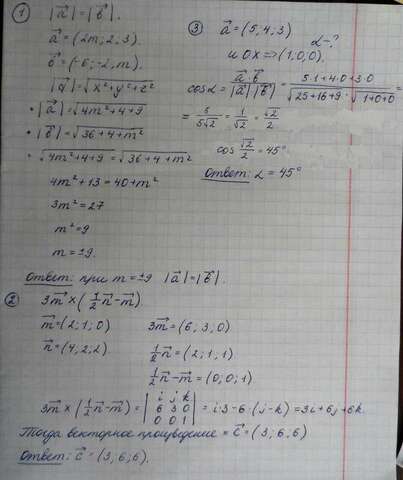 ① |a⃗| = |b⃗|.
a⃗ = (2m; 2; 3).
b⃗ = (-6; -2, m).
|a⃗| = √x²+y²+z²
• |a⃗| = √4m²+4+9
• |b⃗| = √36+4+m²
• √4m²+4+9 = √36+4+m²
4m²+13 = 40+m²
3m² = 27
m² = 9
m = ±9.
Ответ: при m = ±9 |a⃗| = |b⃗|.
③ a⃗ = (5, 4; 3)
α-?
и OX => (1,0,0).
cosα = a⃗ b⃗ / |a⃗| |b⃗| = 5·1+4·0+3·0 / √25+16+9 · √1+0+0 =
= 5/5√2 = 1/√2 = √2/2
cos √2/2 = 45°
Ответ: α = 45°
② 3m⃗ × (1/2 n⃗ - m⃗).
m⃗ = (2; 1; 0) 3m⃗ = (6; 3; 0)
n⃗ = (4, 2; 2) 1/2 n⃗ = (2; 1; 1)
1/2 n⃗ - m⃗ = (0; 0; 1).
3m⃗ × (1/2 n⃗ - m⃗) = | i j k
6 3 0
0 0 1 | = i·3-6·(j-k) = 3i+6j+6k.
Тогда векторное произведение = c⃗ = (3; 6, 6)
Ответ: c⃗ = (3; 6; 6).